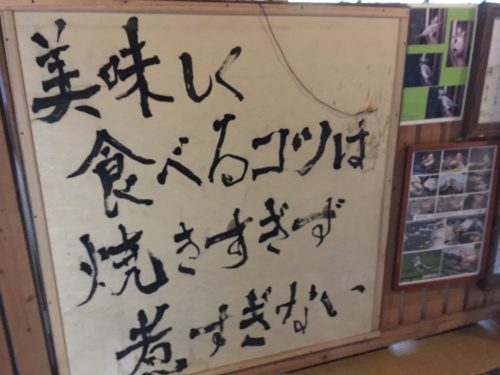 美味しく
食べるコツは
焼きすぎず
煮すぎない